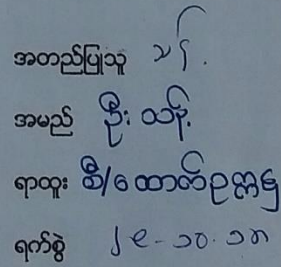 အတည်ပြုသူ သန်.
အမည် ဦး ထိန်
ရာထူး စီ/ထောက်ဥက္ကဋ္ဌ
ရက်စွဲ ၂၉-၁၀-၁၈